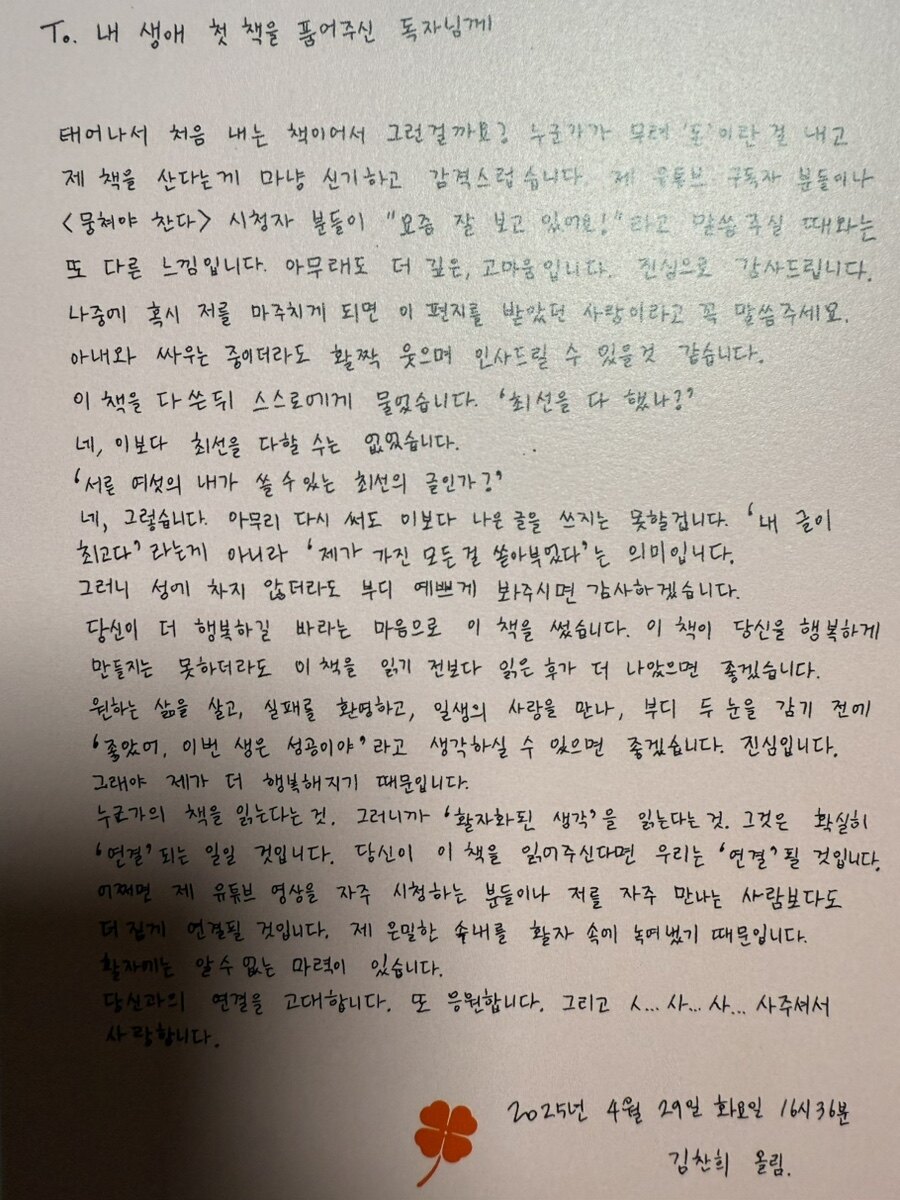 To. 내 생애 첫 책을 품어주신 독자님께
태어나서 처음 내는 책이어서 그런걸까요? 누군가가 무려 '돈'이란 걸 내고
제 책을 산다는게 마냥 신기하고 감격스럽습니다. 제 유튜브 구독자 분들이나
<뭉쳐야 찬다> 시청자 분들이 "요즘 잘 보고 있어요!"라고 말씀 주실 때와는
또 다른 느낌입니다. 아무래도 더 깊은, 고마움입니다. 진심으로 감사드립니다.
나중에 혹시 저를 마주치게 되면 이 편지를 받았던 사람이라고 꼭 말씀주세요.
아내와 싸우는 중이더라도 활짝 웃으며 인사드릴 수 있을것 같습니다.
이 책을 다 쓴뒤 스스로에게 물었습니다. '최선을 다 했나?'
네, 이보다 최선을 다할 수는 없었습니다.
'서른 여섯의 내가 쓸 수 있는 최선의 글인가?'
네, 그렇습니다. 아무리 다시 써도 이보다 나은 글을 쓰지는 못할겁니다. '내 글이
최고다' 라는게 아니라 '제가 가진 모든 걸 쏟아부었다'는 의미입니다.
그러니 성에 차지 않더라도 부디 예쁘게 봐주시면 감사하겠습니다.
당신이 더 행복하길 바라는 마음으로 이 책을 썼습니다. 이 책이 당신을 행복하게
만들지는 못하더라도 이 책을 읽기 전보다 읽은 후가 더 나았으면 좋겠습니다.
원하는 삶을 살고, 실패를 환영하고, 일생의 사랑을 만나, 부디 두 눈을 감기 전에
'좋았어, 이번 생은 성공이야'라고 생각하실 수 있으면 좋겠습니다. 진심입니다.
그래야 제가 더 행복해지기 때문입니다.
누군가의 책을 읽는다는 것. 그러니까 '활자화된 생각'을 읽는다는 것. 그것은 확실히
'연결'되는 일일 것입니다. 당신이 이 책을 읽어주신다면 우리는 '연결'될 것입니다.
어쩌면 제 유튜브 영상을 자주 시청하는 분들이나 저를 자주 만나는 사람보다도
더 짙게 연결될 것입니다. 제 은밀한 속내를 활자 속에 녹여냈기 때문입니다.
활자에는 알 수 없는 마력이 있습니다.
당신과의 연결을 고대합니다. 또 응원합니다. 그리고 ㅅ... 사... 사... 사주셔서
사랑합니다.
2025년 4월 29일 화요일 16시36분
김찬희 올림.